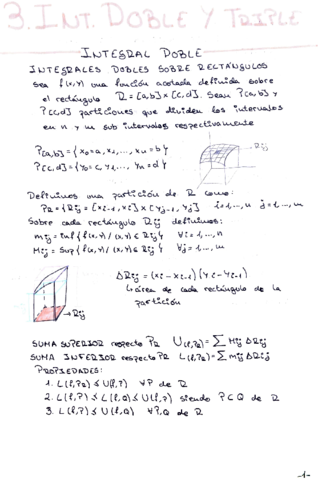 3. INT. DOBLE Y TRIPLE
INTEGRAL DOBLE
INTEGRALES DOBLES SOBRE RECTÁNGULOS
sea f(x,y) una función acotada definida sobre
el rectángulo R = [a,b] x [c,d]. Sean P[a,b] y
P[c,d] particiones que dividen los intervalos
en n y m sub intervalos respectivamente
P[a,b] = {x₀=a, x₁, ..., xn = b}
Rij
P[c,d] = {y₀=c, y₁, ..., yn = d}
Definimos una partición de R como:
PR = {Rij = [xi-1, xi] x [yj-1, yj] i=1,...,n j=1,...,m
Sobre cada rectángulo Rij definimos:
mij = inf{f(x,y) / (x,y) ∈ Rij} ∀i=1,...,n
Mij = sup{f(x,y) / (x,y) ∈ Rij} ∀j=1,...,m
ΔRij = (xi - xi-1)(yi - yi-1)
↳ área de cada rectángulo de la
partición
Rij
SUMA SUPERIOR respecto PR U(f,PR) = ∑ Mij ΔRij
SUMA INFERIOR respecto PR L(f,PR) = ∑ mij ΔRij
PROPIEDADES:
1. L(f,PR) ≤ U(f,P) ∀P de R
2. L(f,P) ≤ L(f,Q) ≤ U(f,P) siendo P⊂Q de R
3. L(f,P) ≤ U(f,Q) ∀P,Q de R
-1-